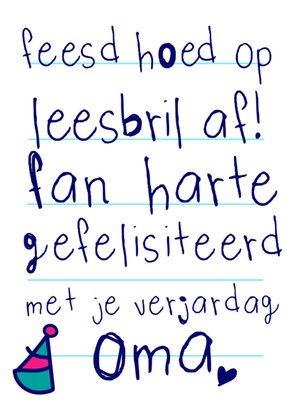 feesd hoed op
leesbril af!
fan harte
gefelisiteerd
met je verjardag
oma